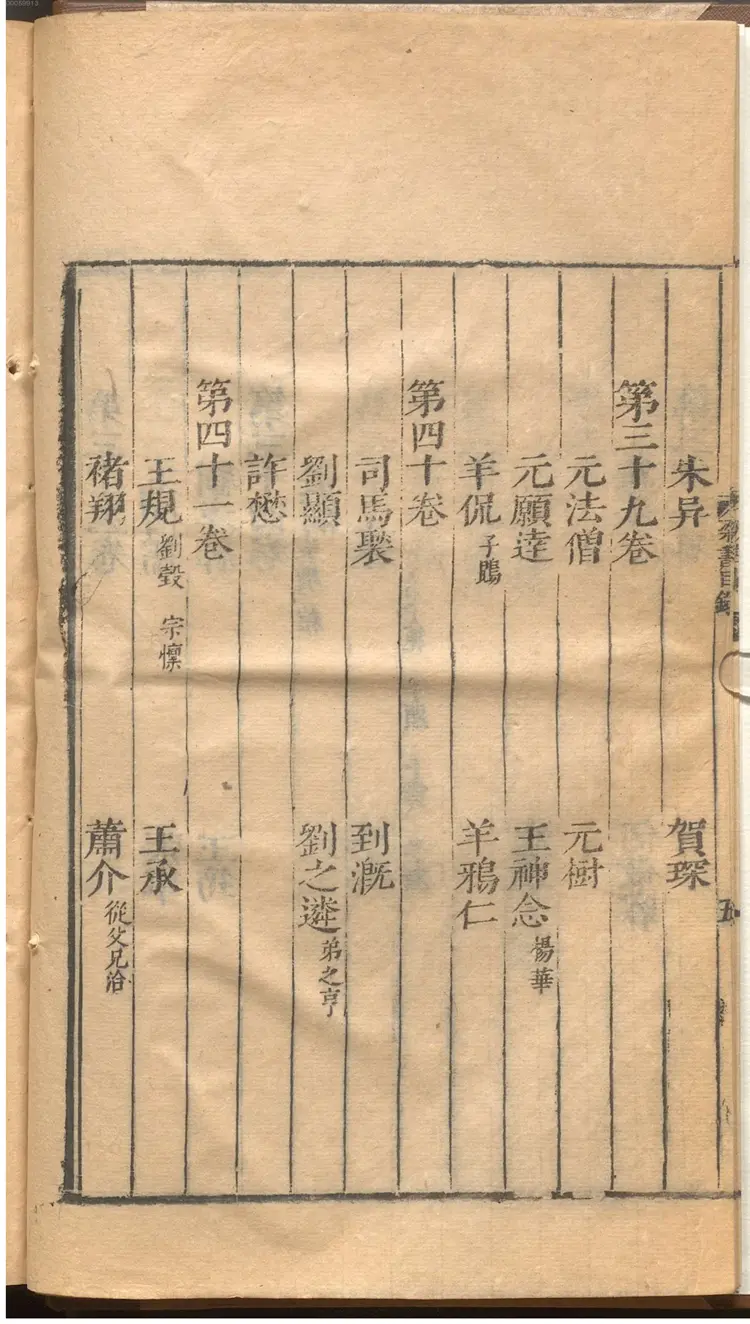 朱异 賀琛
第三十九卷
元法僧 元樹
元願達 王神念 楊華
羊侃 子鵾 羊鴉仁
第四十卷
司馬褧 到溉
劉顯 劉之遴 弟之亨
許懋
第四十一卷
王規 劉瑴 宗懍 王承
褚翔 蕭介 從父兄洽
梁書目錄
五